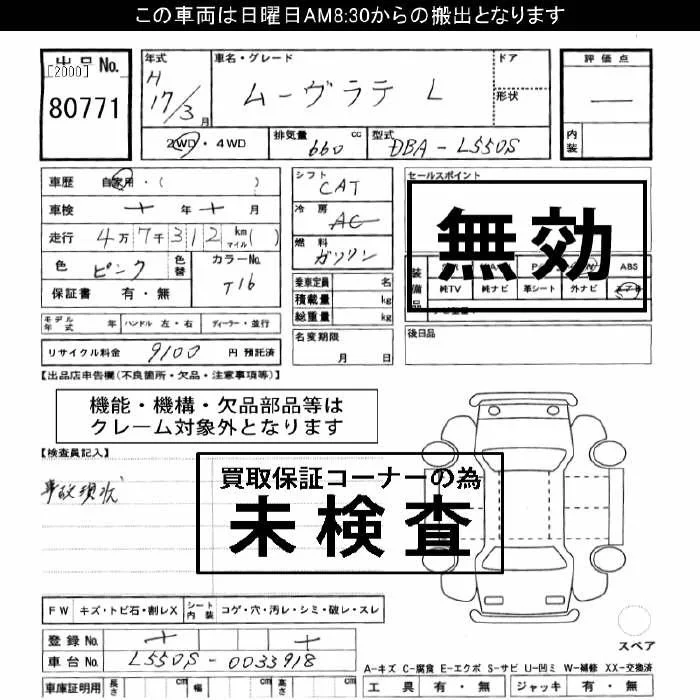 この車両は日曜日AM8:30からの搬出となります
出品No.
[2000]
80771
年式 H 17/3月
車名・グレード ムーヴラテ L
ドア
形状
評価点 ―
内装
2WD・4WD
排気量 660 cc
型式 DBA-L550S
車歴 自家用・( )
車検 年 月
走行 4万7千312 km マイル( )
色 ピンク 色替
カラーNo. T16
保証書 有・無
シフト CAT
冷房 AC
燃料 ガソリン
乗車定員 名
積載量 kg
総重量 kg
セールスポイント
無効
装備品
ABS
純TV 純ナビ 革シート 外ナビ
モデル年式 年 ハンドル 左・右 ディーラー・並行
名変期限 月 日
後日品
リサイクル料金 9100 円 預託済
【出品店申告欄(不良箇所・欠品・注意事項等)】
機能・機構・欠品部品等は
クレーム対象外となります
【検査員記入】
事故現状
買取保証コーナーの為
未検査
FW キズ・トビ石・割レX シート内装 コゲ・穴・汚レ・シミ・破レ・スレ
登録No.
車台No. L550S-0033918
スペア
A-キズ C-腐食 E-エクボ S-サビ U-凹ミ W-補修 XX-交換済
車庫証明用 長さ cm 幅 cm 高さ cm
工具 有・無 ジャッキ 有・無